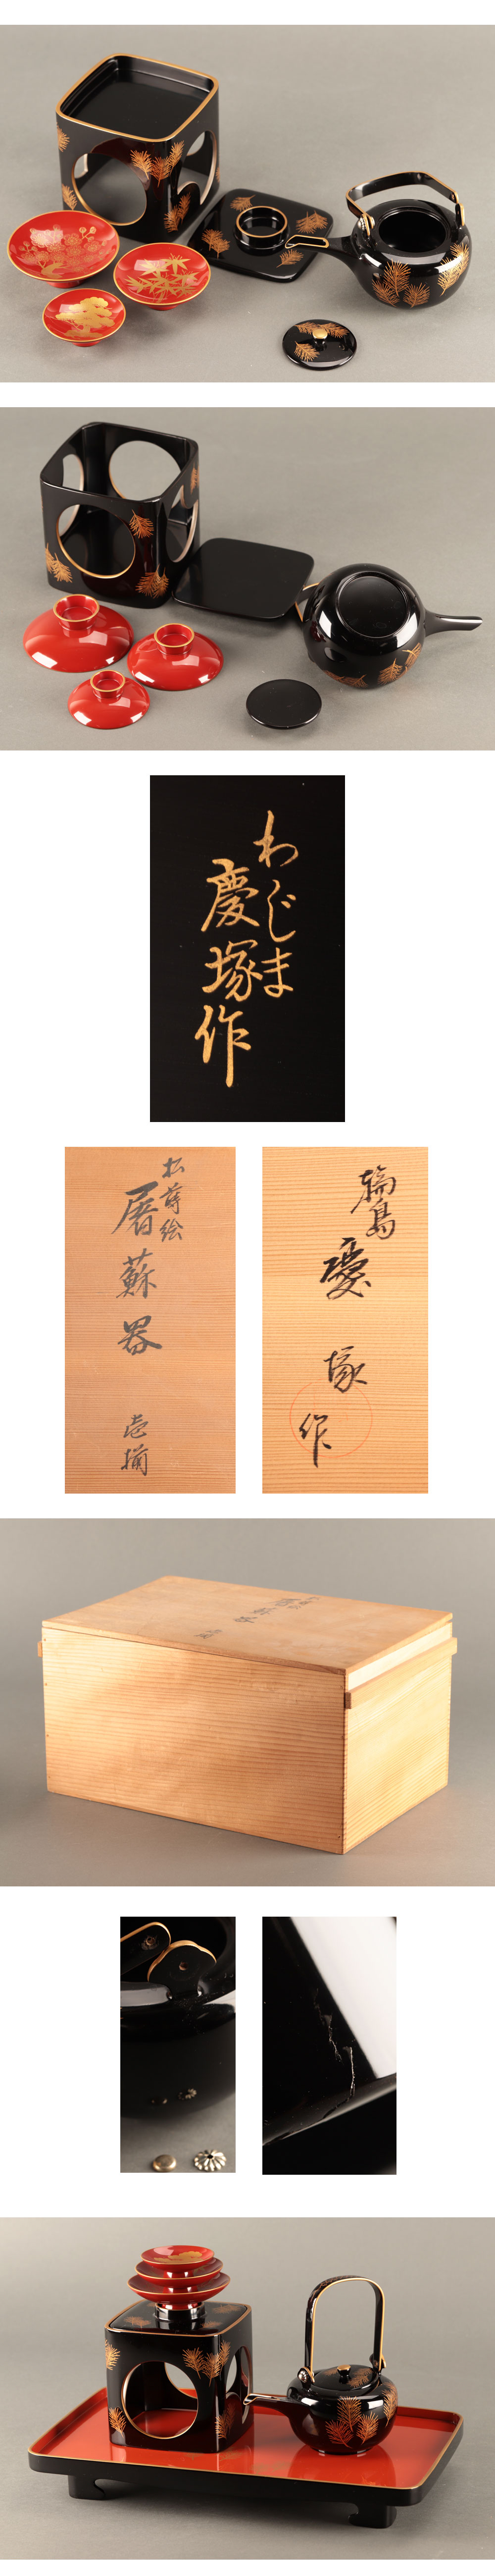 わじま
慶塚作
松蒔絵
屠蘇器
壱揃
輪島
慶塚
作